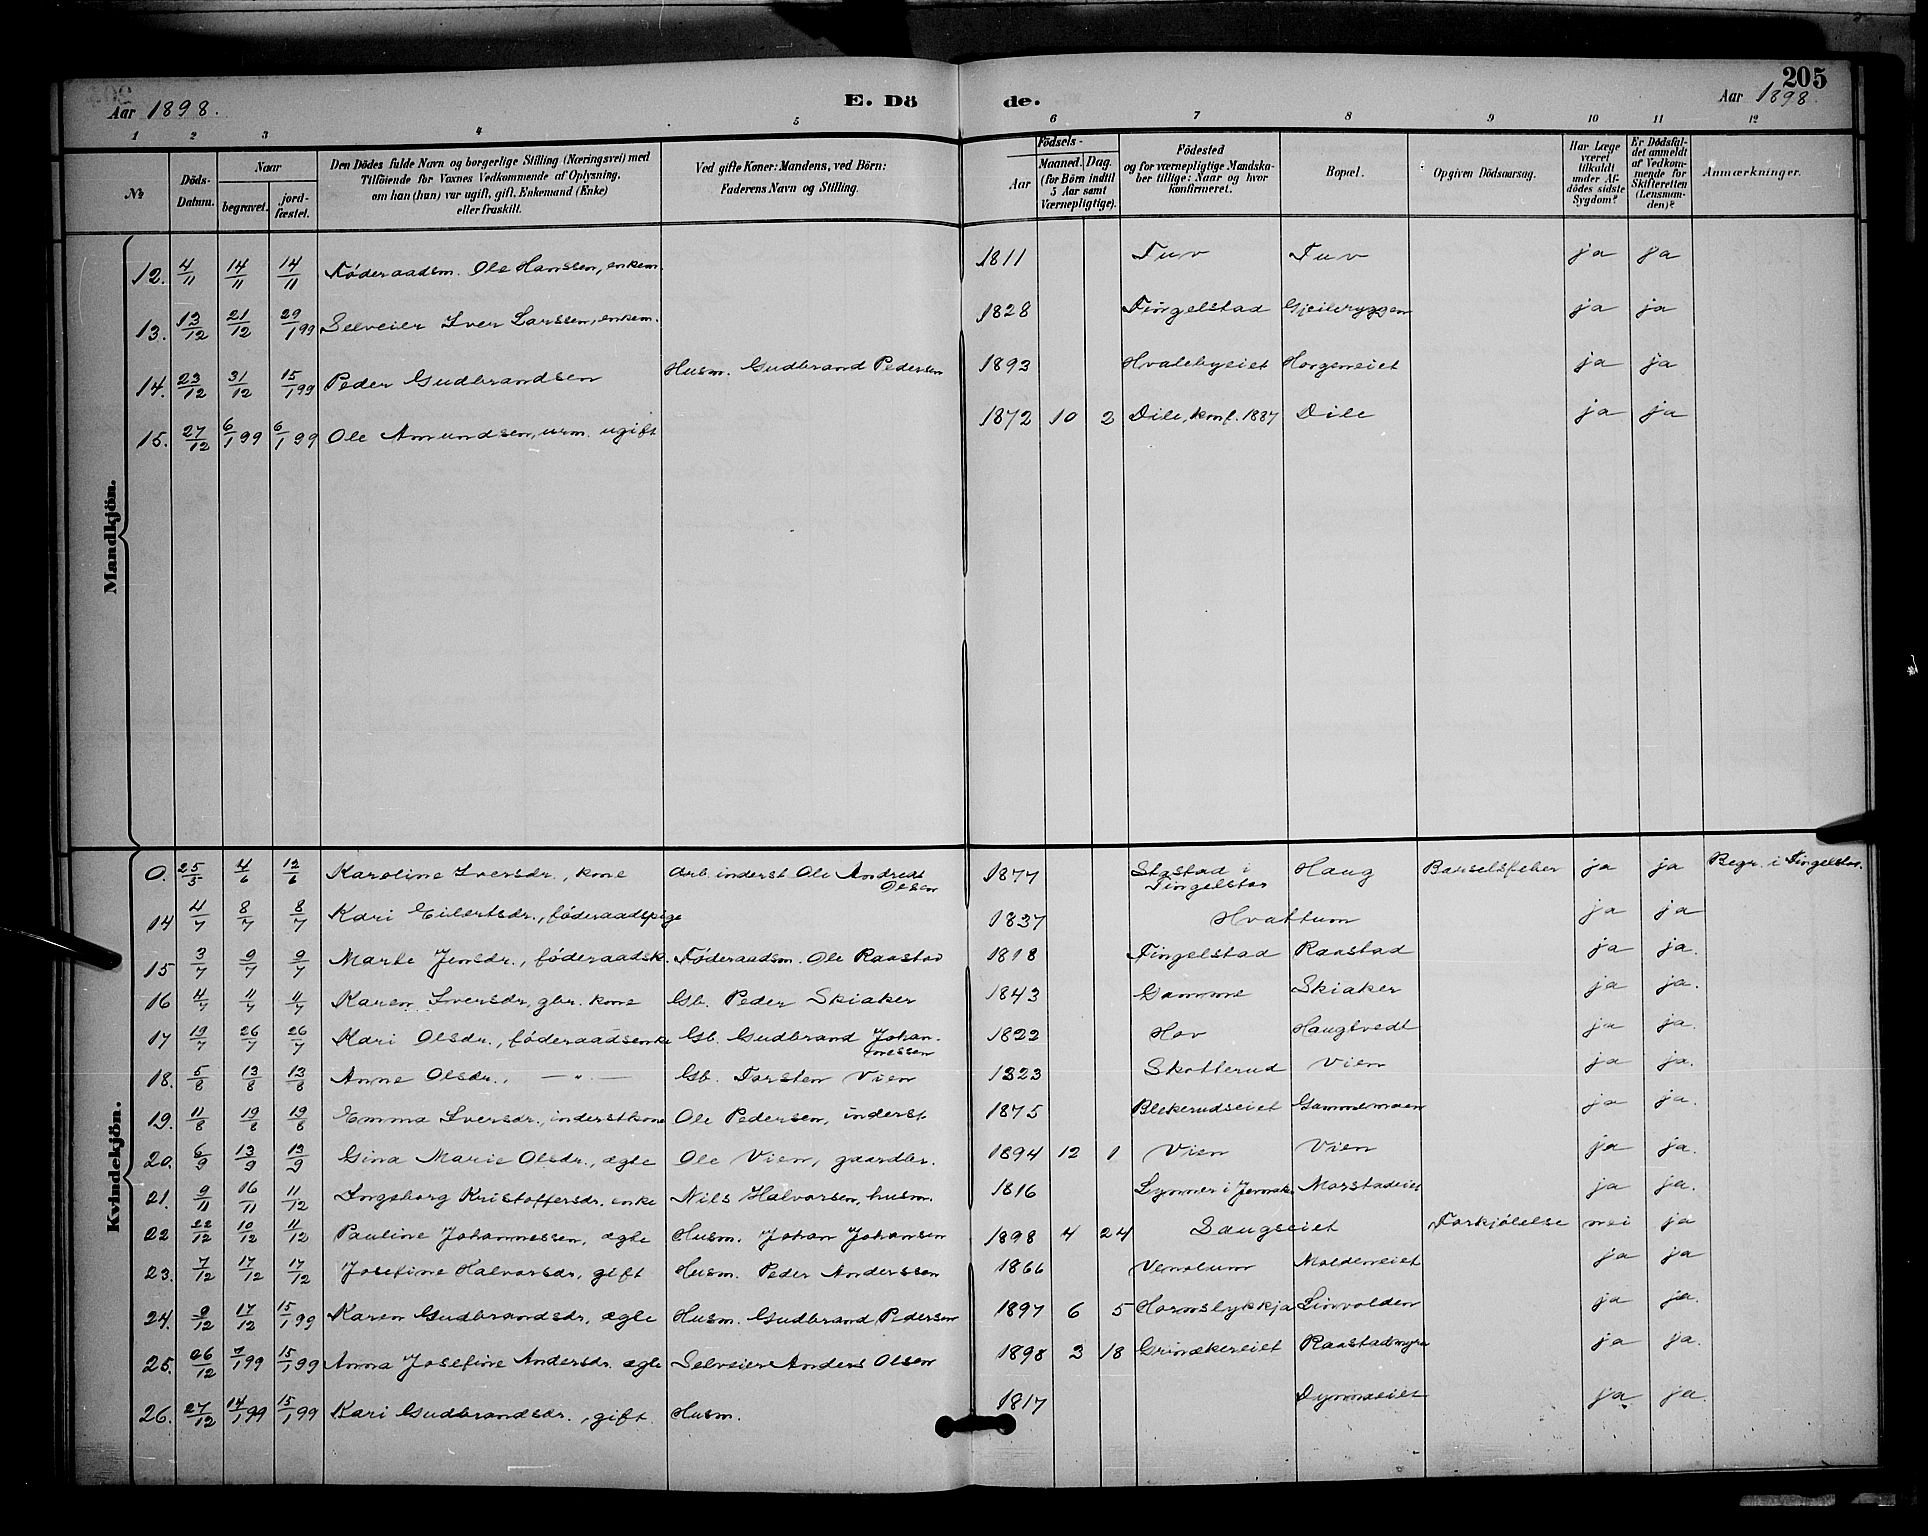 205
Aar 1898. E. Dö de. Aar 1898.
1 2 3 4 5 6 7 8 9 10 11 12
№ Döds-Datum. Naar begravet. jord-fæstet. Den Dödes fulde Navn og borgerlige Stilling (Næringsvei) med Tilföiende for Voxnes Vedkommende af Oplysning, om han (hun) var ugift, gift, Enkemand (Enke) eller fraskilt. Ved gifte Koner: Mandens, ved Börn: Faderens Navn og Stilling. Födsels- Aar Maaned. Dag. (for Börn indtil 5 Aar samt Værnepligtige). Födested og for værnepligtige Mandskaber tillige: Naar og hvor konfirmeret. Bopæl. Opgiven Dödsaarsag. Har Læge været tilkaldt under Afdödes sidste Sygdom? Er Dödsfaldet anmeldt af Vedkommende for Skifteretten (Lensmanden)? Anmærkninger.
Mandkjön.
12. 4/11 14/11 14/11 Föderaadsm. Ole Hanssen, enkem. 1811 Tuv Tuv ja ja
13. 13/12 21/12 29/1 99 Selveier Iver Larssen, enkem. 1828 Tingelstad Gjeileryggen ja ja
14. 23/12 31/12 15/1 99 Peder Gudbrandsen Husm. Gudbrand Pedersen 1893 Hvalebyeiet Horgeneiet ja ja
15. 27/12 6/1 99 6/1 99 Ole Amundsen, urm. ugift 1872 10 2 Dile, konf. 1887 Dile ja ja
Kvindekjön.
0. 25/5 4/6 12/6 Karoline Iversdr., kone Arb. inderst Ole Andreas Olsen 1877 Stastad i Tingelstad Haug Barselsfeber ja ja Begr. i Tingelstad.
14 4/7 8/7 8/7 Kari Eilertsdr., föderaadspige 1837 Hvattum ja ja
15 3/7 9/7 9/7 Marte Jensdr., föderaadsk. Föderaadsm. Ole Raastad 1818 Tingelstad Raastad ja ja.
16 4/7 11/7 11/7 Karen Iversdr, gbr. kone Gb. Peder Skiaker 1843 Gamme Skiaker ja ja.
17 19/7 26/7 26/7 Kari Olsdr., föderaadsenke Gb. Gudbrand Johannessen 1822 Hov Haugtvedt ja ja.
18. 5/8 13/8 13/8 Anne Olsdr., — " — Gb. Torsten Vien 1823 Skotterud Vien ja ja.
19. 11/8 19/8 19/8 Emma Iversdr., inderstkone Ole Pedersen, inderst 1875 Blekerudseiet Gammemoen ja ja.
20. 6/9 13/9 13/9 Gina Marie Olsdr., ægte Ole Vien, gaardbr. 1894 12 1 Vien Vien ja ja.
21. 9/11 16/11 11/12 Ingeborg Kristoffersdr, enke Nils Halvorsen, husm. 1816 Lynner i Jevnaker Morstadeiet ja ja.
22 22/12 10/12 11/12 Pauline Johannessen, ægte Husm. Johan Johansen 1898 4 24 Saugseiet Forkjölelse nei ja
23. 7/12 17/12 17/12 Josefine Halvorsdr, gift Husm. Peder Anderssen 1866 Venolum Moldeneiet ja ja
24. 9/12 17/12 15/1 99 Karen Gudbrandsdr, ægte Husm. Gudbrand Pedersen 1897 6 5 Hornslykkja Linvolden ja ja.
25. 26/12 7/1 99 15/1 99 Anna Josefine Andersdr. ægte Selveier Anders Olsen 1898 3 18 Grinakereiet Raastadmyra ja ja.
26. 27/12 14/1 99 15/1 99 Kari Gudbrandsdr., gift. Husm. 1817 Dynnaeiet ja. ja.